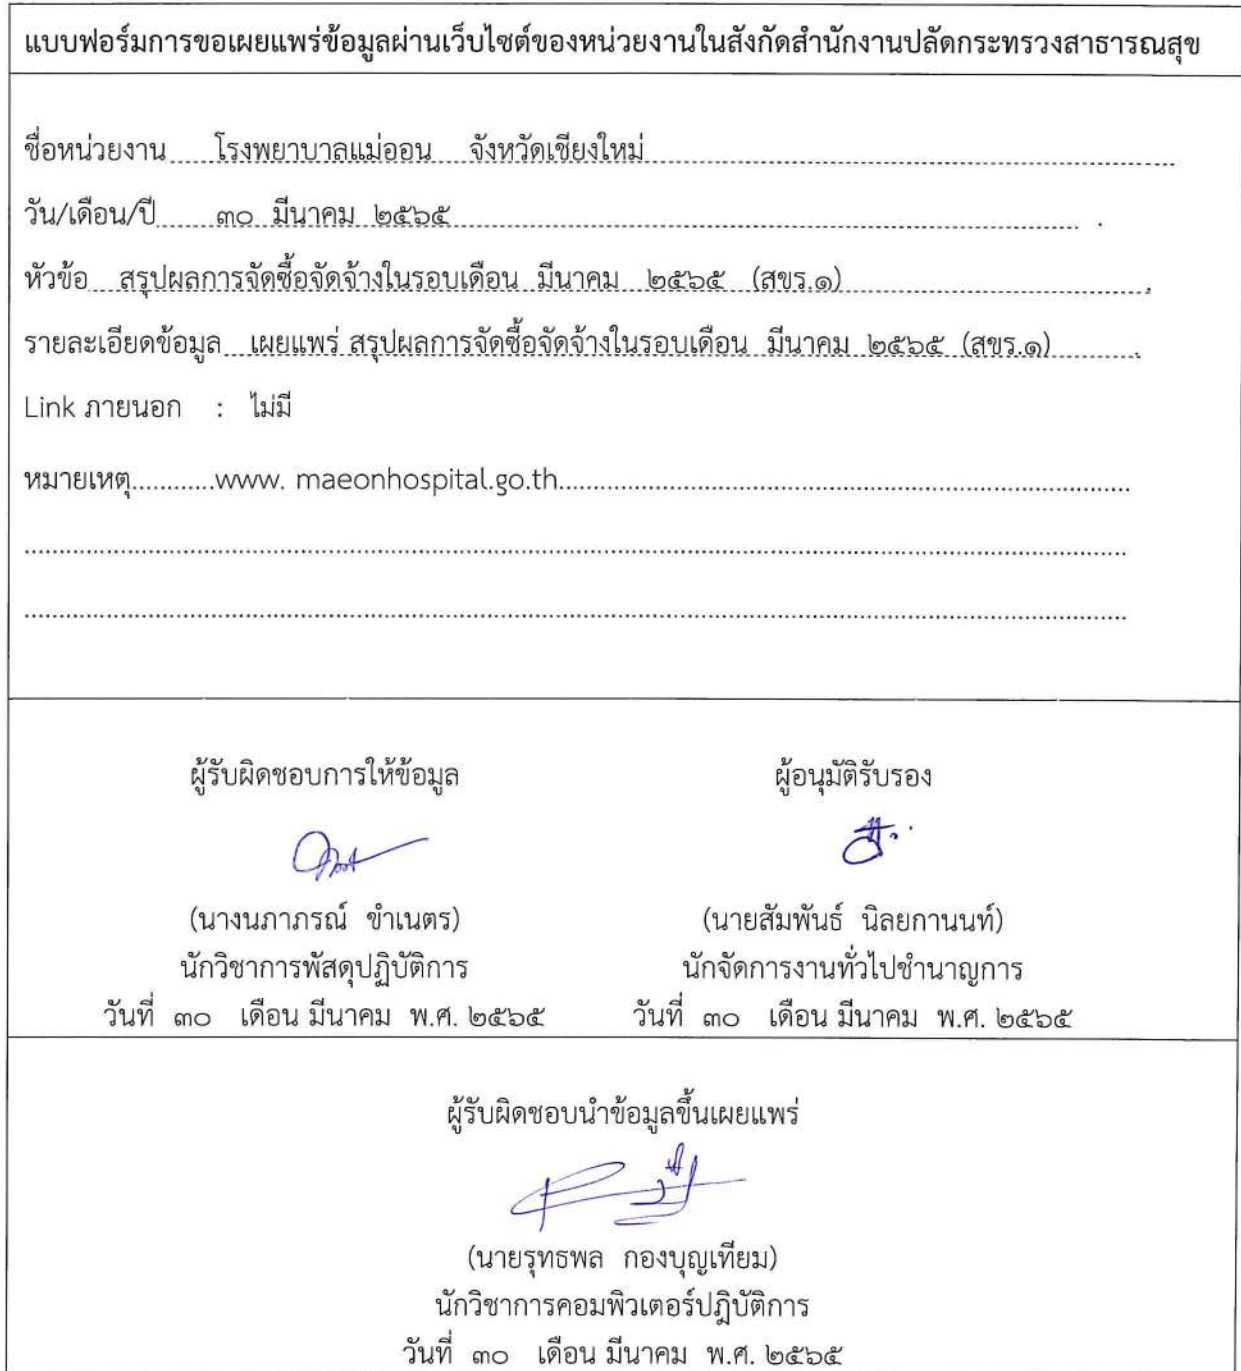 แบบฟอร์มการขอเผยแพร่ข้อมูลผ่านเว็บไซต์ของหน่วยงานในสังกัดสำนักงานปลัดกระทรวงสาธารณสุข
ชื่อหน่วยงาน.....โรงพยาบาลแม่ออน จังหวัดเชียงใหม่
วัน/เดือน/ปี ๓๐ มีนาคม ๒๕๖๕ .
หัวข้อ สรุปผลการจัดซื้อจัดจ้างในรอบเดือน มีนาคม ๒๕๖๕ (สขร.๑) .
รายละเอียดข้อมูล เผยแพร่ สรุปผลการจัดซื้อจัดจ้างในรอบเดือน มีนาคม ๒๕๖๕ (สขร.๑) .
Link ภายนอก : ไม่มี
หมายเหตุ............www. maeonhospital.go.th
ผู้รับผิดชอบการให้ข้อมูล ผู้อนุมัติรับรอง
(นางนภาภรณ์ ขำเนตร) (นายสัมพันธ์ นิลยกานนท์)
นักวิชาการพัสดุปฏิบัติการ นักจัดการงานทั่วไปชำนาญการ
วันที่ ๓๐ เดือน มีนาคม พ.ศ. ๒๕๖๕ วันที่ ๓๐ เดือน มีนาคม พ.ศ. ๒๕๖๕
ผู้รับผิดชอบนำข้อมูลขึ้นเผยแพร่
(นายรุทธพล กองบุญเทียม)
นักวิชาการคอมพิวเตอร์ปฎิบัติการ
วันที่ ๓๐ เดือน มีนาคม พ.ศ. ๒๕๖๕